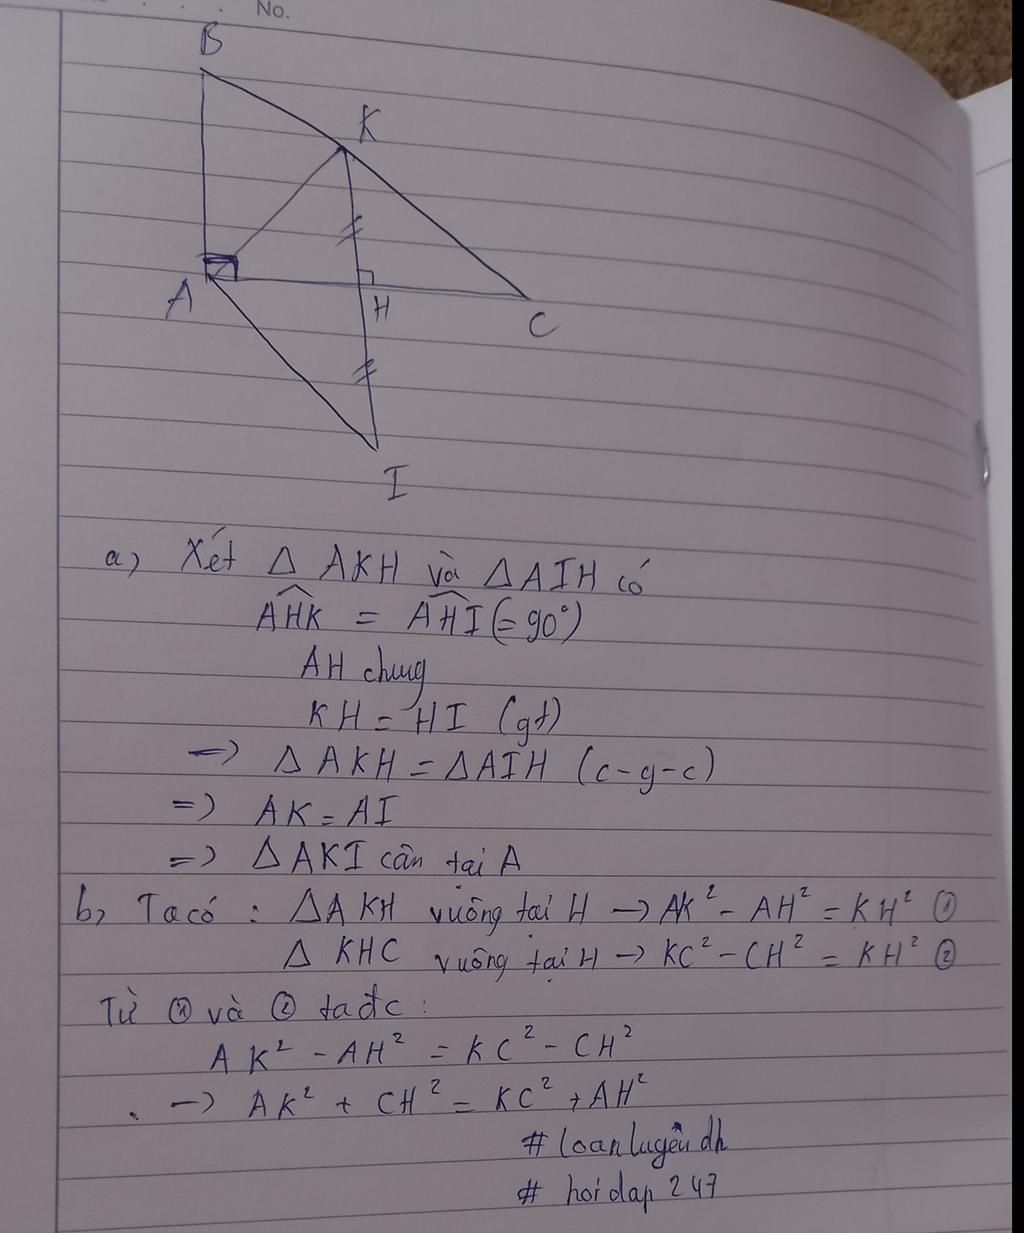 No.
B
K
A
H
C
I
a, Xét Δ AKH và ΔAIH có
AHK = AHI (= 90°)
AH chung
KH = HI (gt)
=> Δ AKH = ΔAIH (c-g-c)
=> AK = AI
=> ΔAKI cân tại A
b, Ta có : ΔAKH vuông tại H -> AK² - AH² = KH² ①
Δ KHC vuông tại H -> KC² - CH² = KH² ②
Từ ① và ② ta đc :
AK² - AH² = KC² - CH²
-> AK² + CH² = KC² + AH²
# loanluyễn dh
# hoidap 247